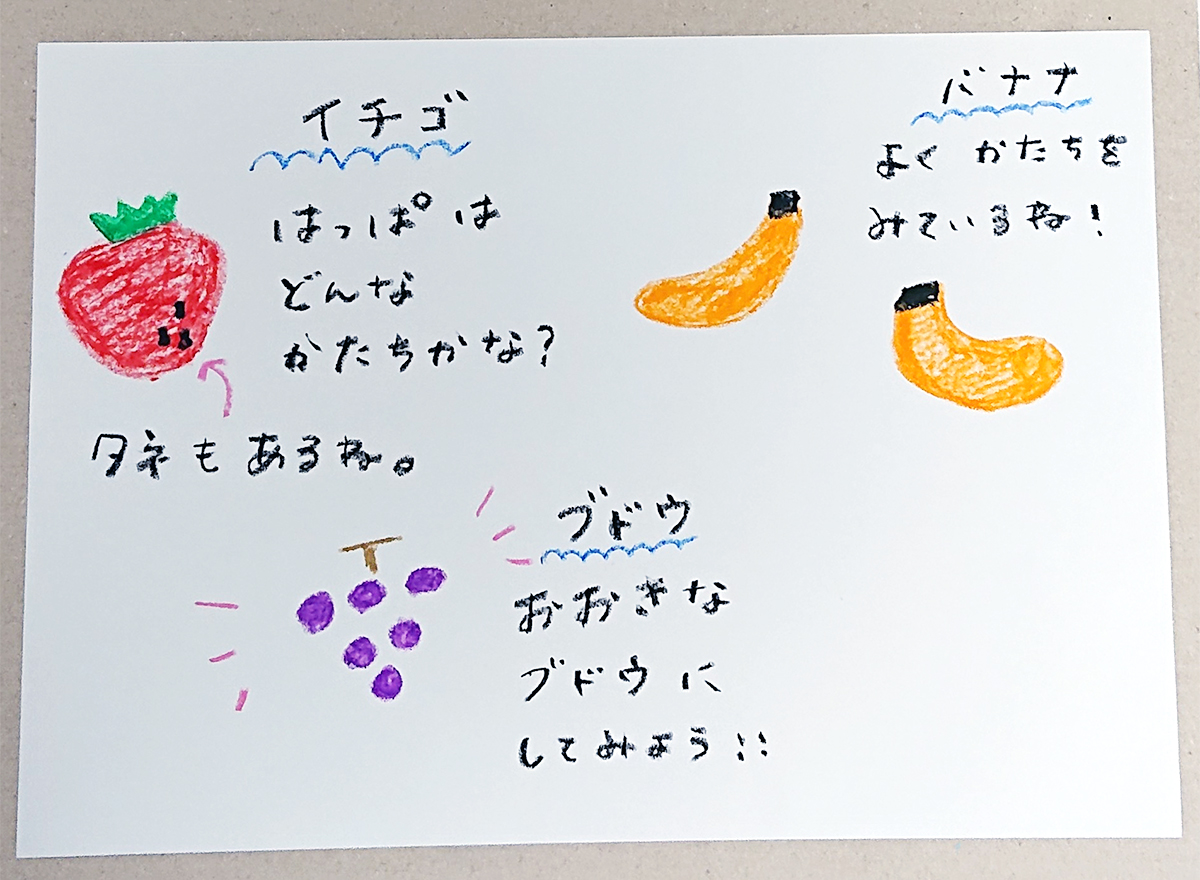 イチゴ
はっぱは
どんな
かたちかな?
タネもあるね。
バナナ
よく かたちを
みているね!
ブドウ
おおきな
ブドウに
してみよう!!